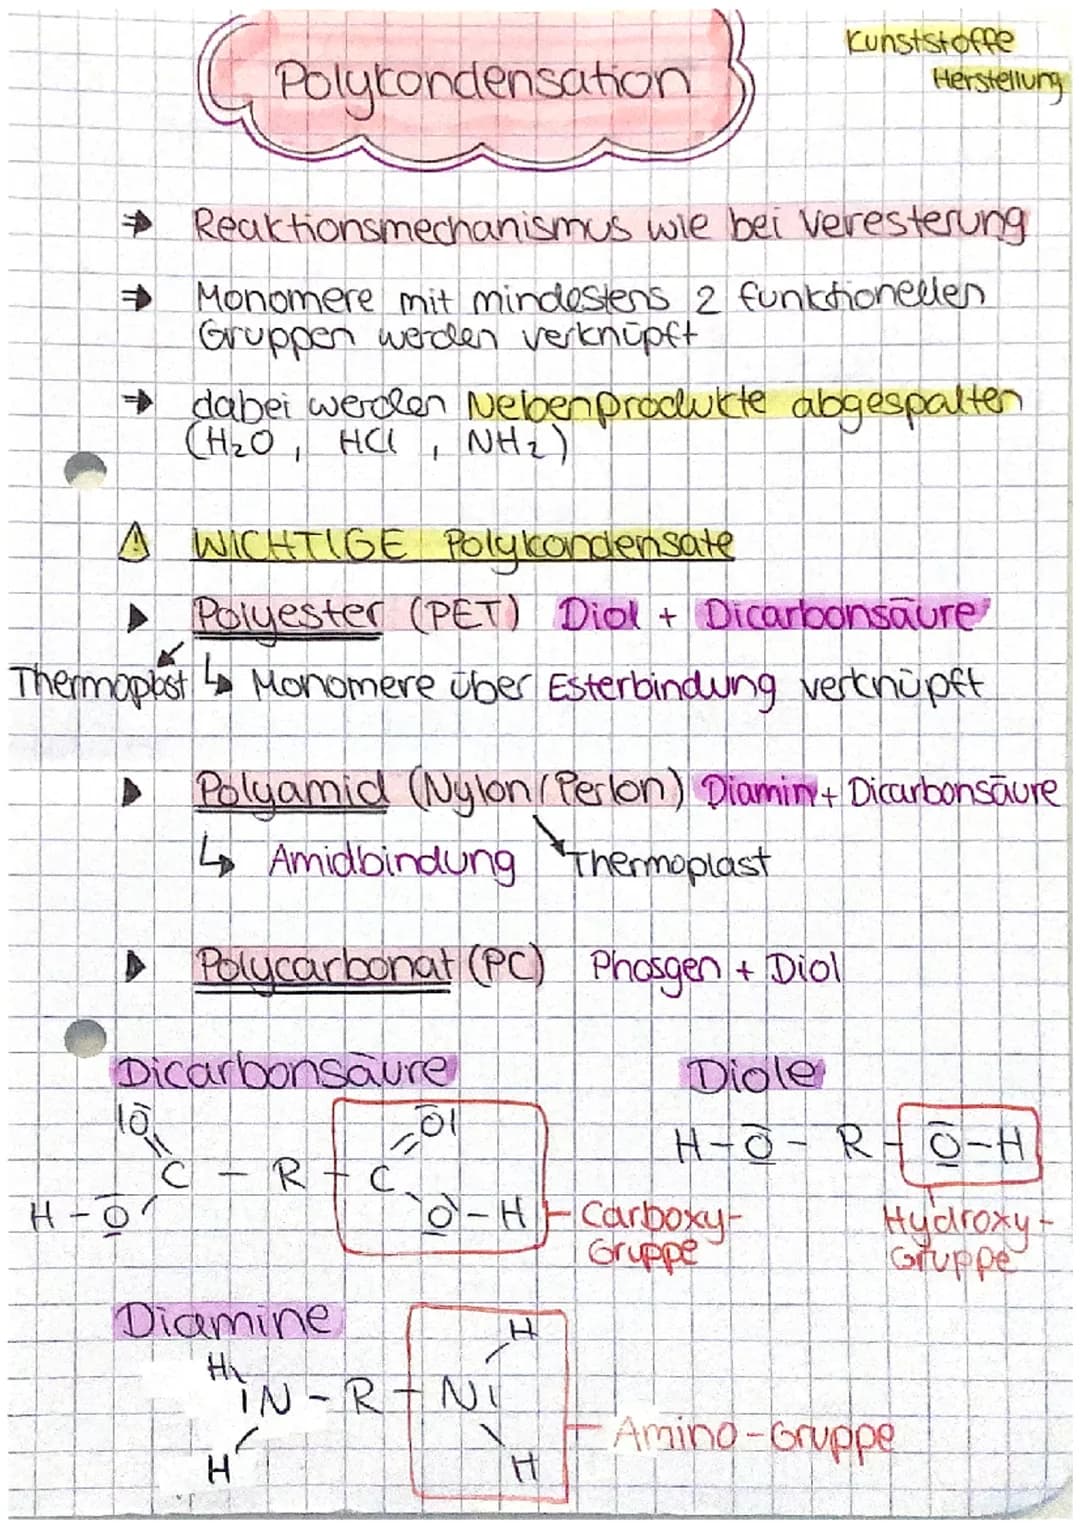 Polykondensation
Kunststoffe
Herstellung
⇒ Reaktionsmechanismus wie bei Veresterung
⇒ Monomere mit mindestens 2 funktionellen
Gruppen werden verknüpft
⇒ dabei werden Nebenprodukte abgespalten
(H₂O , HCl , NH₂)
⚠ WICHTIGE Polykondensate
▶ Polyester (PET) Diol + Dicarbonsäure
Thermoplast ↳ Monomere über Esterbindung verknüpft
▶ Polyamid (Nylon/Perlon) Diamin + Dicarbonsäure
↳ Amidbindung Thermoplast
▶ Polycarbonat (PC) Phosgen + Diol
Dicarbonsäure Diole
|O O|
H-O- R -O-H
C - R - C
H-O O-H Carboxy-
Gruppe
Hydroxy-
Gruppe
Diamine
H H
|N-R-N|
H H
Amino-Gruppe